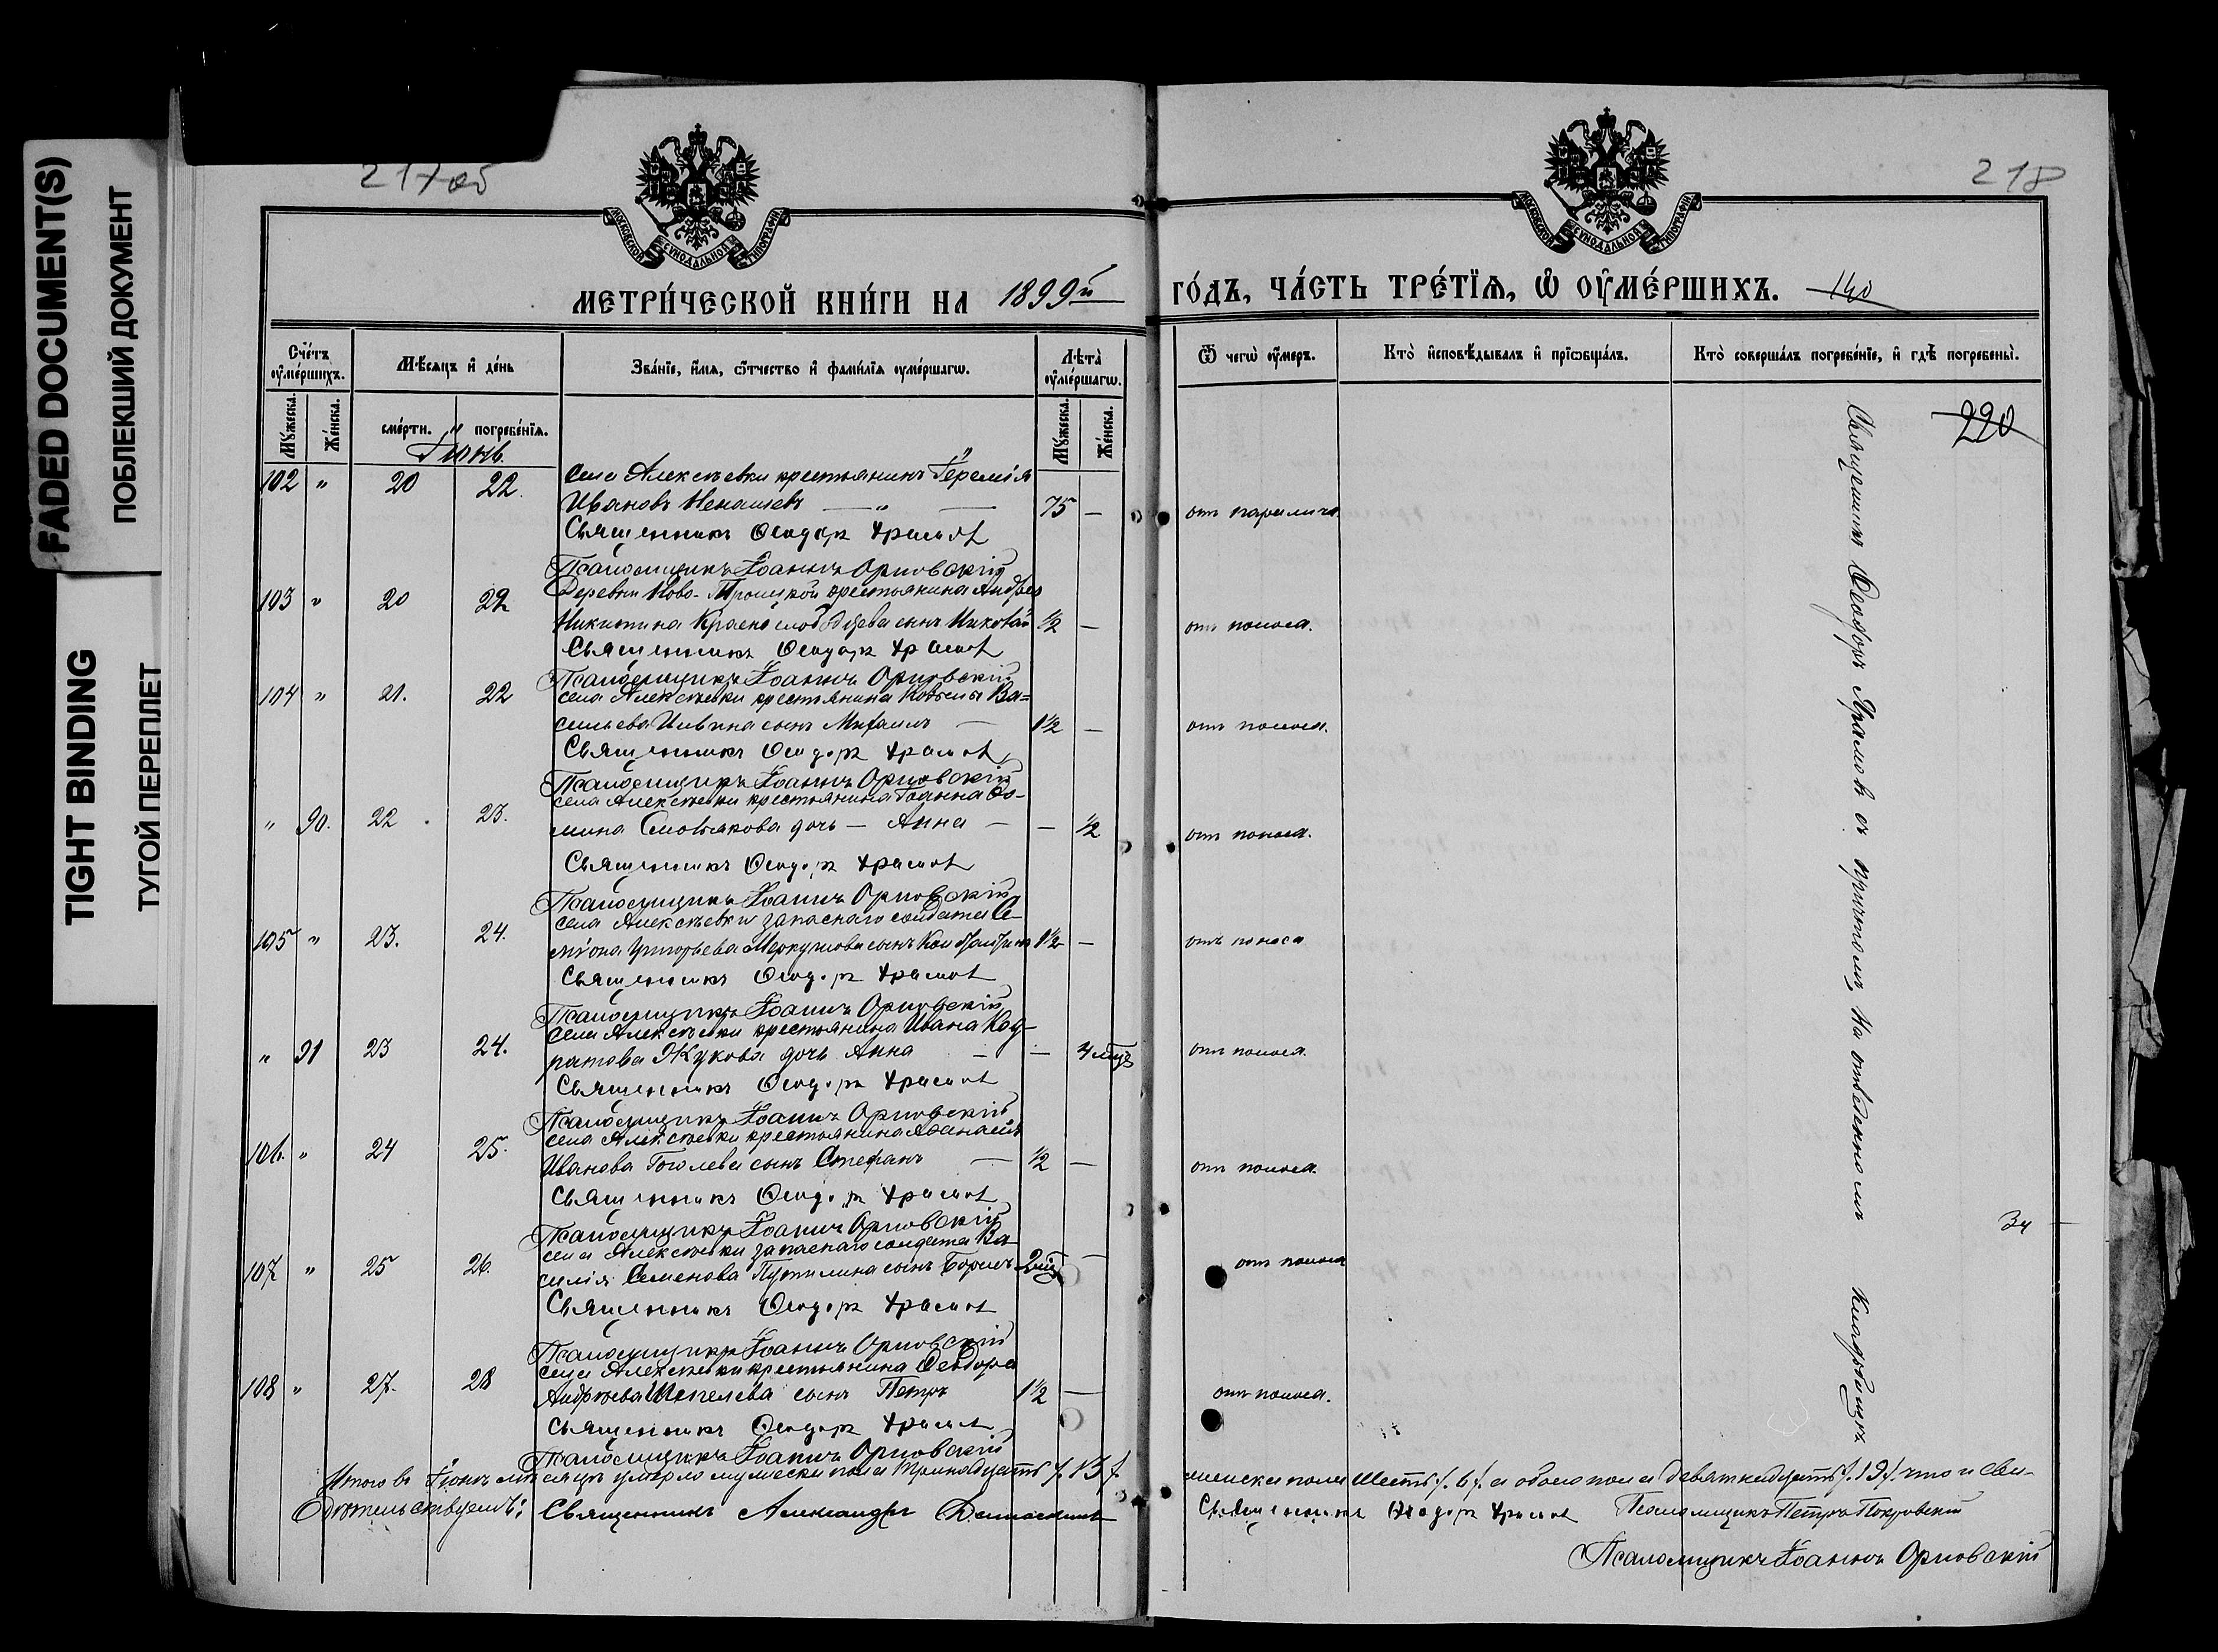 FADED DOCUMENT(S)
ПОБЛЕКШИЙ ДОКУМЕНТ
TIGHT BINDING
ТУГОЙ ПЕРЕПЛЕТ
217об
218
МОСКОВСКОЙ СУНОДАЛЬНОЙ ТИПОГРАФІИ
МОСКОВСКОЙ СУНОДАЛЬНОЙ ТИПОГРАФІИ
МЕТРИ́ЧЕСКОЙ КНИ́ГИ НА 1899й ГО́ДЪ, ЧА́СТЬ ТРЕ́ТІѦ, Ѡ ОУМЕ́РШИХЪ. 140
Сче́тъ оуме́ршихъ.
Мѣ́сяцъ и де́нь
Зва́ніе, и́мя, ѿчество и фами́лія оуме́ршагѡ.
Лѣта̀ оуме́ршагѡ.
Ѿ чегѡ̀ оу́меръ.
Кто̀ исповѣ́дывалъ и пріѡбща́лъ.
Кто̀ соверша́лъ погребе́ніе, и гдѣ̀ погребены̀.
Му́жеска. Же́нска. сме́рти. погребе́нія. Му́жеска. Же́нска.
220
Іюнь.
102 " 20 22. Села Алексѣевки крестьянинъ Іеремія
Ивановъ Ненашевъ — " — 75 — отъ паралича.
Священникъ Ѳеодоръ Храмовъ
Псаломщикъ Іоаннъ Орловскій
103 " 20 22 Деревни Ново-Троицкой крестьянина Андрея
Никитина Краснослободцева сынъ Николай 1/2 — отъ поноса.
Священникъ Ѳеодоръ Храмовъ
Псаломщикъ Іоаннъ Орловскій
104 " 21. 22 села Алексѣевки крестьянина Козьмы Ва=
сильева Ильина сынъ Михаилъ — 1 1/2 — отъ поноса.
Священникъ Ѳеодоръ Храмовъ
Псаломщикъ Іоаннъ Орловскій
" 90. 22. 23. села Алексѣевки крестьянина Іоанна Ѳо-
мина дочь — Анна — — 1/2 отъ поноса.
Священникъ Ѳеодоръ Храмовъ
Псаломщикъ Іоаннъ Орловскій
105 " 23. 24. села Алексѣевки запаснаго солдата Си-
міона Григорьева Меркулова сынъ 1 1/2 — отъ поноса
Священникъ Ѳеодоръ Храмовъ
Псаломщикъ Іоаннъ Орловскій
" 91 23 24. села Алексѣевки крестьянина Ивана Код-
ратова Жукова дочь Анна — — 4 мѣс отъ поноса.
Священникъ Ѳеодоръ Храмовъ
Псаломщикъ Іоаннъ Орловскій
106. " 24 25. села Алексѣевки крестьянина Аѳанасія
Иванова Гоголева сынъ Стефанъ — 1/2 — отъ поноса.
Священникъ Ѳеодоръ Храмовъ
Псаломщикъ Іоаннъ Орловскій
107 " 25 26. села Алексѣевки запаснаго солдата Ва-
силія Семенова Путилина сынъ Борисъ — отъ поноса
Священникъ Ѳеодоръ Храмовъ
Псаломщикъ Іоаннъ Орловскій
108 " 27. 28 села Алексѣевки крестьянина Ѳеодора
Андреева Шепелева сынъ Петръ 1 1/2 — отъ поноса.
Священникъ Ѳеодоръ Храмовъ
Псаломщикъ Іоаннъ Орловскій
Священникъ Ѳеодоръ Храмовъ съ причтомъ, На отведенномъ кладбищѣ
34
Итого въ Іюнѣ мѣсяцѣ умерло мужеска пола тринадцать /. 13 /. женска пола шесть /. 6 /. а обоего пола девятнадцать /. 19 /. что и сви-
дѣтельствуемъ: Священникъ Александръ Священникъ Ѳеодоръ Храмовъ Псаломщикъ Петръ Покровскій
Псаломщикъ Іоаннъ Орловскій